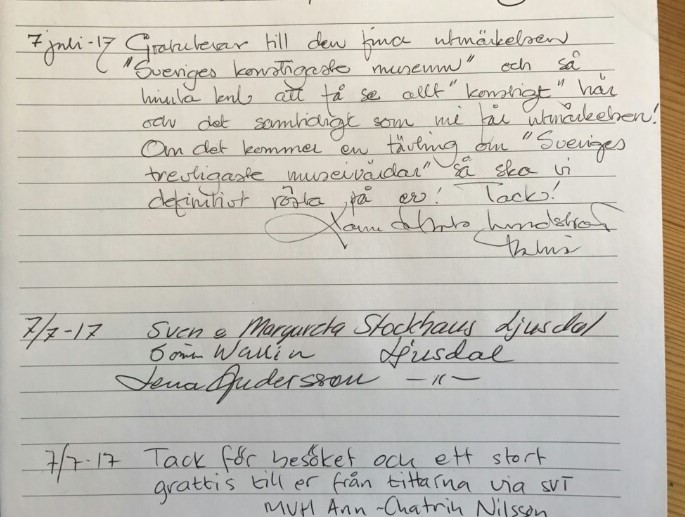 7 juli-17 Gratulerar till den fina utmärkelsen
"Sveriges konstigaste museum" och så
himla kul att få se allt "konstigt" här
och det samtidigt som ni får utmärkelsen!
Om det kommer en tävling om "Sveriges
trevligaste museivärdar" så ska vi
definitivt rösta på er! Tack!
7/7-17 Sven o Margareta Stockhaus Ljusdal
Wallin Ljusdal
Lena Andersson -"-
7/7-17 Tack för besöket och ett stort
grattis till er från tittarna via SVT
MVH Ann-Chatrin Nilsson